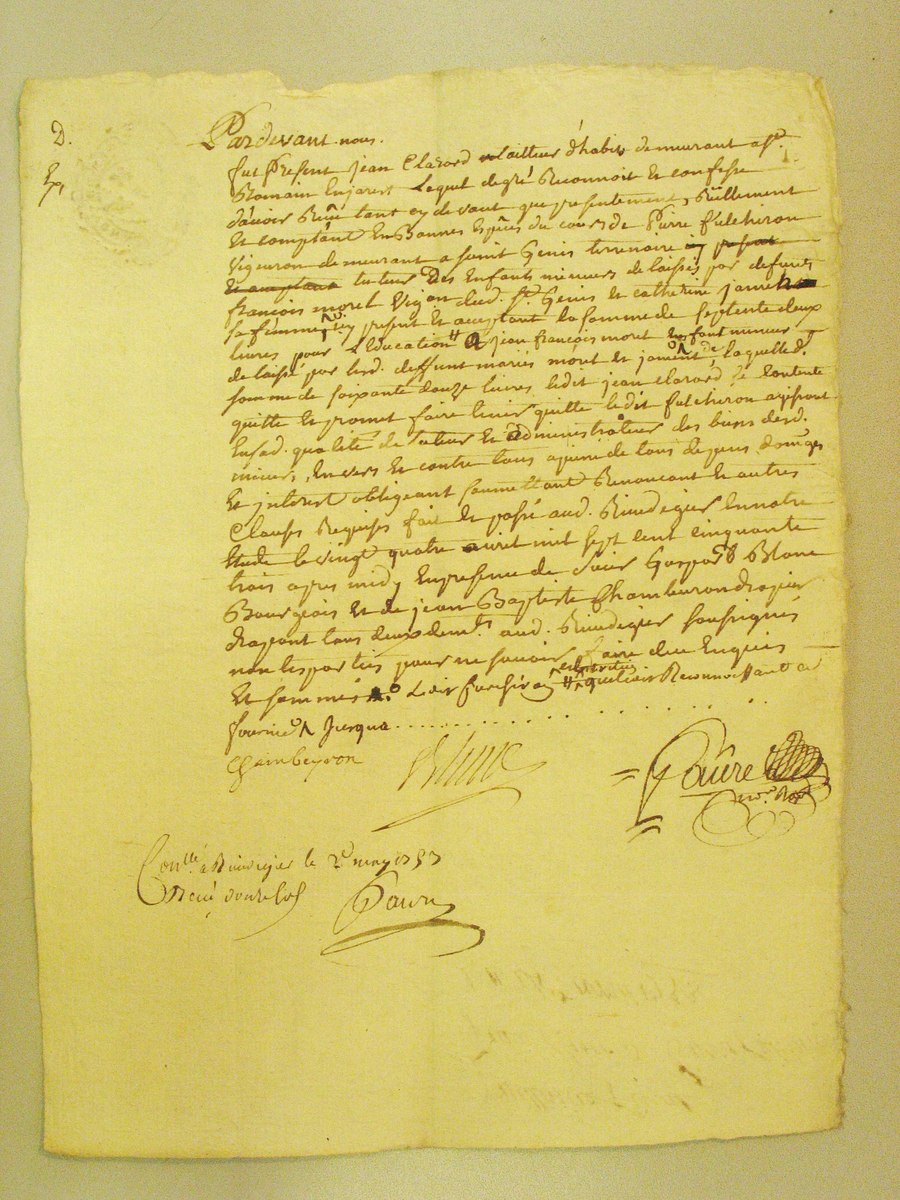 D.
Ex
Pardevant nous.
fut Présent jean Clarard tailleur d'habits demeurant a St.
Romain En jarest Lequel de gré Reconnoit et confesse
d'avoir Reçu tant cy devant que présentement, Réellement
Et comptant En Bonnes Espèces du cours de Pierre fulchiron
Vigneron demeurant a saint Genis terrenoire en présent
Et acceptant tuteur Des Enfants mineurs de laissés par defunts
françois morel Vigon dud. St. Genis et catherine
sa femme, icy présent Et acceptant la somme de septente deux
livres pour L'Education a jean françois morel Enfant mineur
de laissé par lesd. deffunt mariés morel et, laquelle de
somme de soixante douze livres ledit jean clarard se Contente
quitte Et promet faire tenir quitte ledit fulchiron agissant
En sad. qualité de tuteur Et administrateur des biens desd.
mineurs, Envers Et contre tous a peine de tous depens domages
Et interest obligeant soumettant Renonçant Et autres
Clauses Requises fait Et passé aud. Rivedegier En notre
Etude le vingt quatre avril mil sept cent cinquante
trois apres midy En presence de sieur Gaspard Blanc
Bourgeois Et de jean Baptiste Chambeiron drapier
drapant tous deux demts. aud. Rivedegier soussignés
non les parties pour ne savoir faire due Enquis
Et sommés
fournie Jusqua . . . . . . . . . . . .
Chambeyron
Blanc
Faure
Conllé a Rivedegier le 2e may 1753
Reçu douze sols
Faure